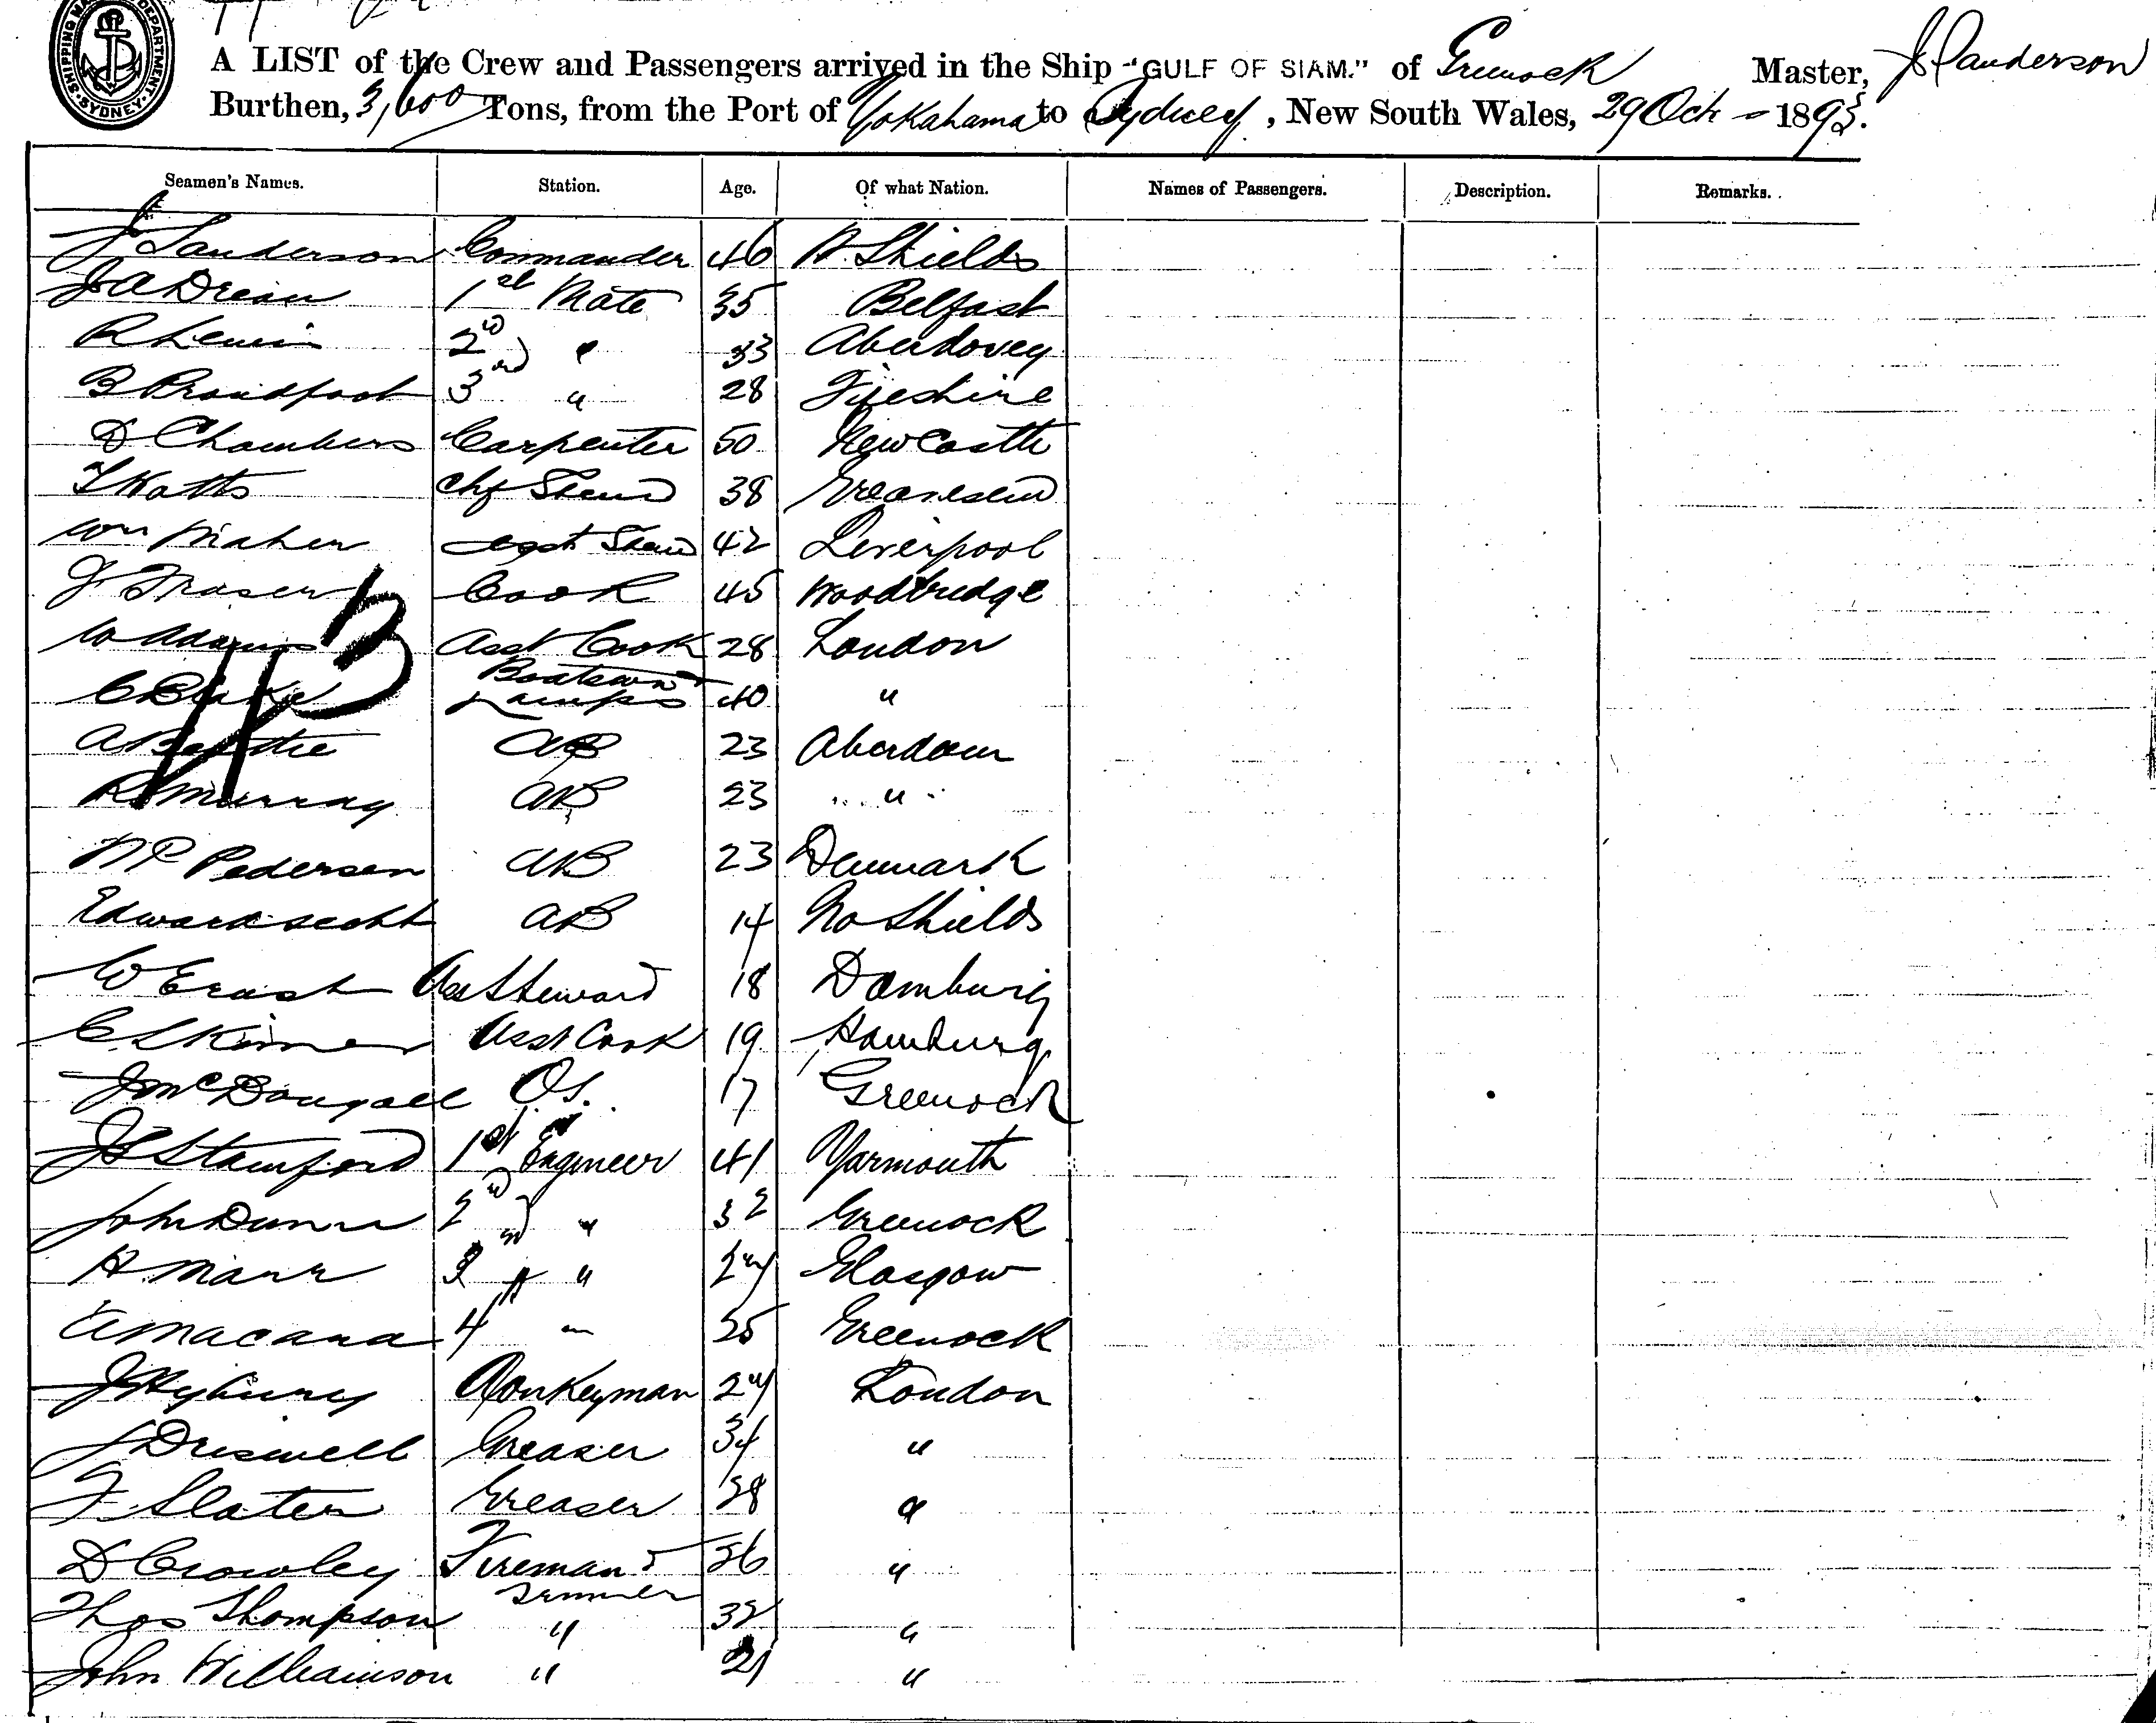 SHIPPING MA DEPARTMENT SYDNEY
A LIST of the Crew and Passengers arrived in the Ship "GULF OF SIAM." of Greenock Master, J Sanderson
Burthen, 3,600 Tons, from the Port of Yokahama to Sydney, New South Wales, 29 Oct 1893.
Seamen's Names. Station. Age. Of what Nation. Names of Passengers. Description. Remarks.
J Sanderson Commander 46 N. Shields
J A Drean 1st Mate 35 Belfast
R Lewis 2nd " 33 Aberdovey
B Proudfoot 3rd " 28 Fifeshire
D Chambers Carpenter 50 New Castle
Katts Chf Stewd 38 Gravesend
Wm Maher Asst Stewd 42 Liverpool
J Fraser Cook 45 Woodbridge
W Adams Asst Cook 28 London
C Blake Boatswn & Lamps 40 "
A Beattie AB 23 Aberdeen
R Murray AB 23 "
N P Pedersen AB 23 Denmark
Edward Scott AB 14 No Shields
W Ernst Asst Steward 18 Hamburg
C Skinner Asst Cook 19 Hamburg
J McDougall O.S. 17 Greenock
J Stamford 1st Engineer 41 Yarmouth
John Dunn 2nd " 32 Greenock
H Marr 3rd " 24 Glasgow
A Macara 4th " 25 Greenock
J Donkeyman 24 London
J Driswell Greaser 34 "
F Slater Greaser 38 "
D Crowley Fireman & Trimmer 36 "
Thos Thompson " 32 "
John Williamson " 21 "